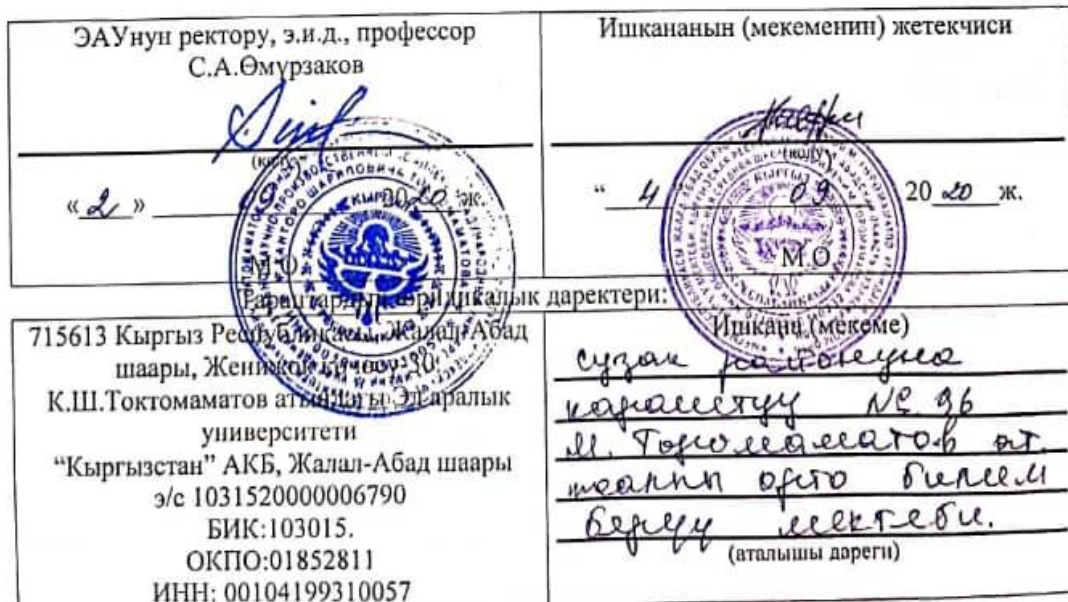 ЭАУнун ректору, э.и.д., профессор
С.А.Өмүрзаков
«2» 2020 ж.
М.О
Ишкананын (мекеменин) жетекчиси
(колу)
“ 4 09 2020 ж.
М.О.
юридикалык даректери:
715613 Кыргыз Республикасы, Жалал-Абад
шаары, 30.
К.Ш.Токтомаматов атындагы Эл аралык
университети
“Кыргызстан” АКБ, Жалал-Абад шаары
э/с 1031520000006790
БИК:103015.
ОКПО:01852811
ИНН: 00104199310057
Ишкана (мекеме)
сузак районуна
караштуу № 96
М. Торомаматов ат.
жалпы орто билим
берүү мектеби.
(аталышы дареги)